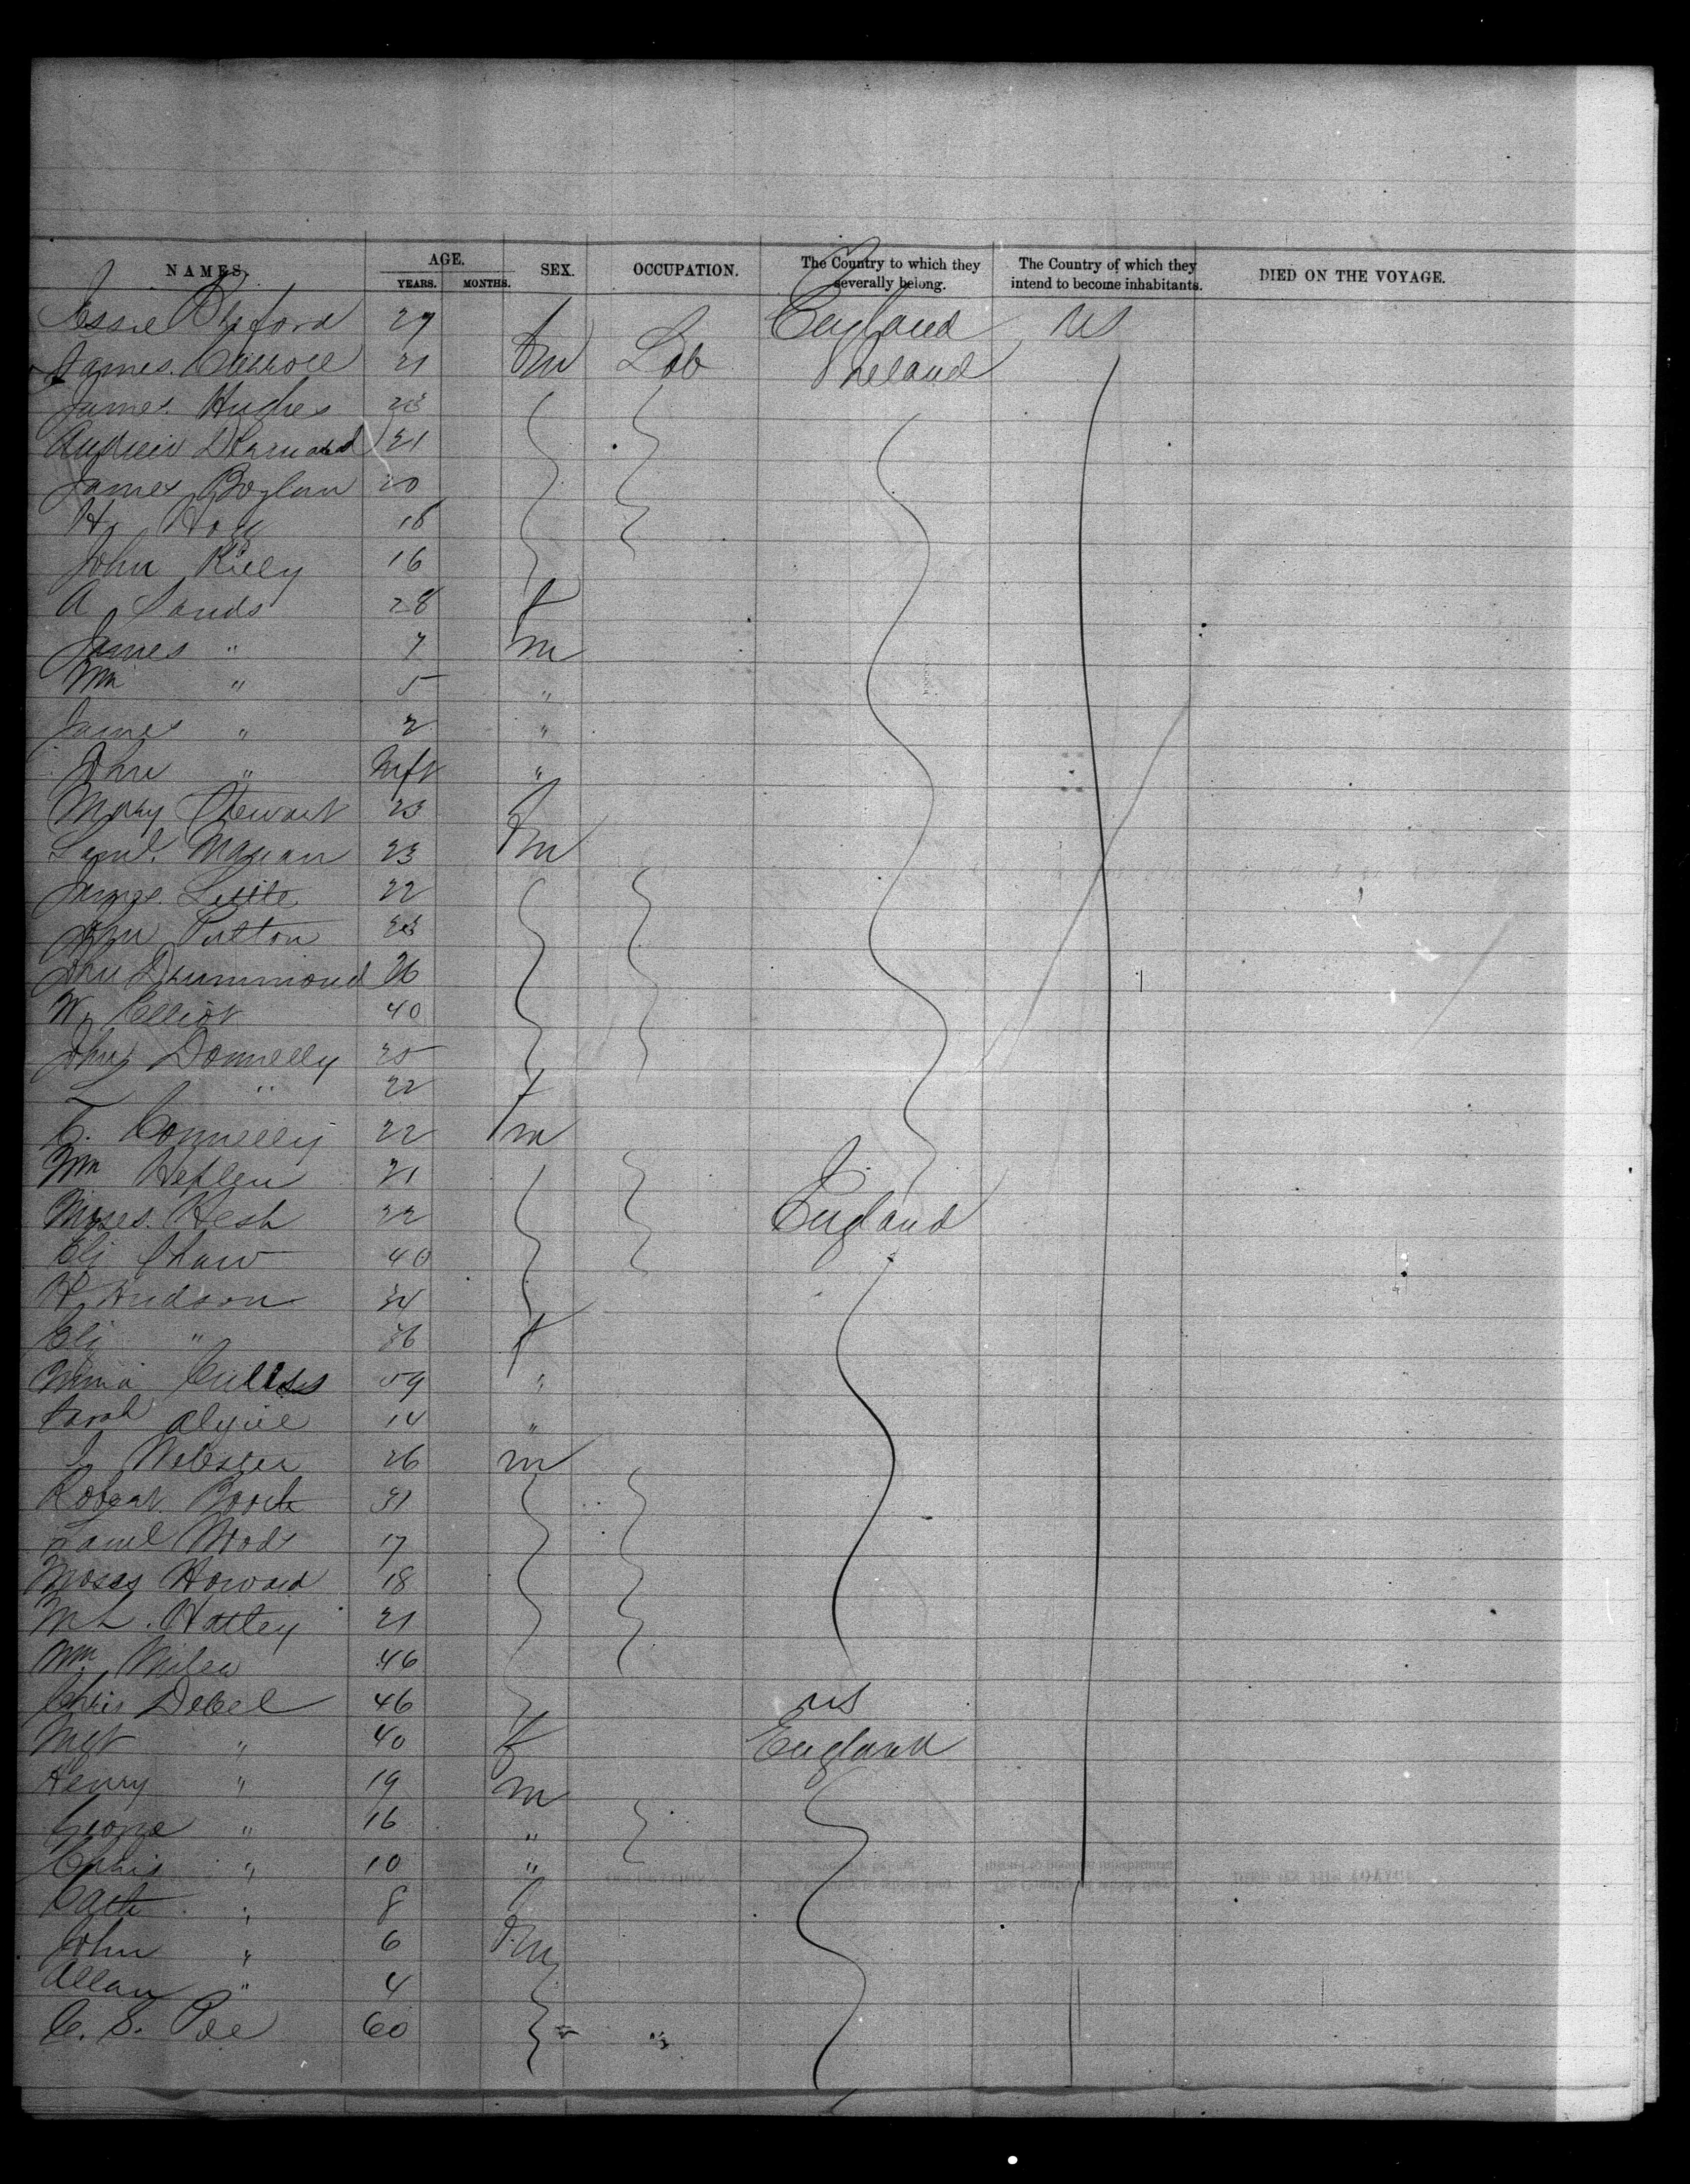 NAMES. AGE. YEARS. MONTHS. SEX. OCCUPATION. The Country to which they severally belong. The Country of which they intend to become inhabitants. DIED ON THE VOYAGE.
Jessie 29 f England US
James Carroll 21 m Lab Ireland
James Hughes 23
Andrew 21
James Boylan 20
H. 18
John Kiely 16
A Sands 28 f
James " 7 m
Wm " 5 "
James " 2 "
John " Inft "
Mary Stewart 23 f
Saml. 23 m
James Little 22
John Pulton 23
John Drummond 26
W. Elliot 40
John Donnelly 25
" 22 f
T. Connelly 22 m
Wm Heflen 21
Moses Hesh 22 England
Elj Shaw 40
H Hudson 34
Elj " 36 f
59 "
Sarah 14 "
J. Webster 26 m
Robert Booth 31
Saml Wods 17
Moses Howard 18
Hattey 21
Wm 46
Chris Debel 46 US
Mgt " 40 f England
Henry " 19 m
George " 16 "
Chris " 10 "
Cath " 8 f
John " 6 m
Allan " 4
C. S. Poe 60